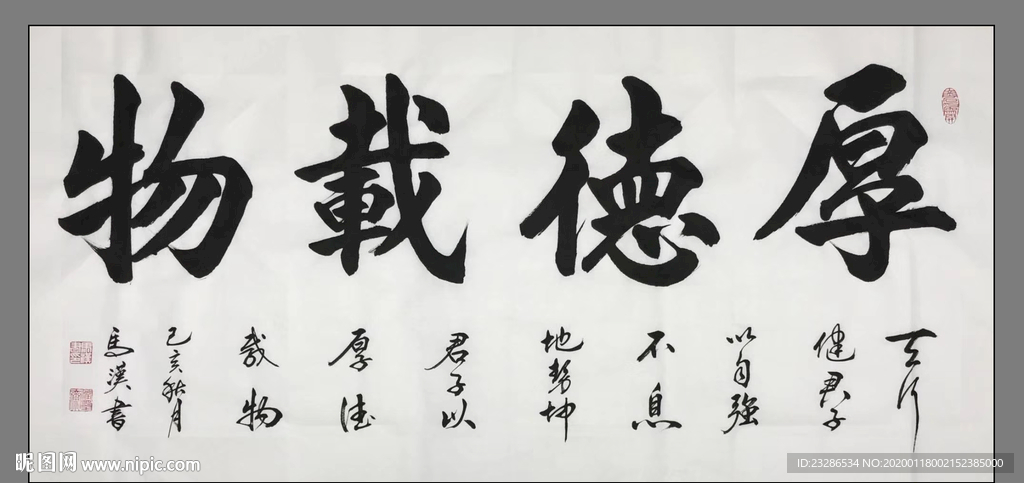 厚德載物
天行
健君子
以自强
不息
地勢坤
君子以
厚德
載物
己亥秋月
馬漢書
昵图网 www.nipic.com
ID:23286534 NO:20200118002152385000